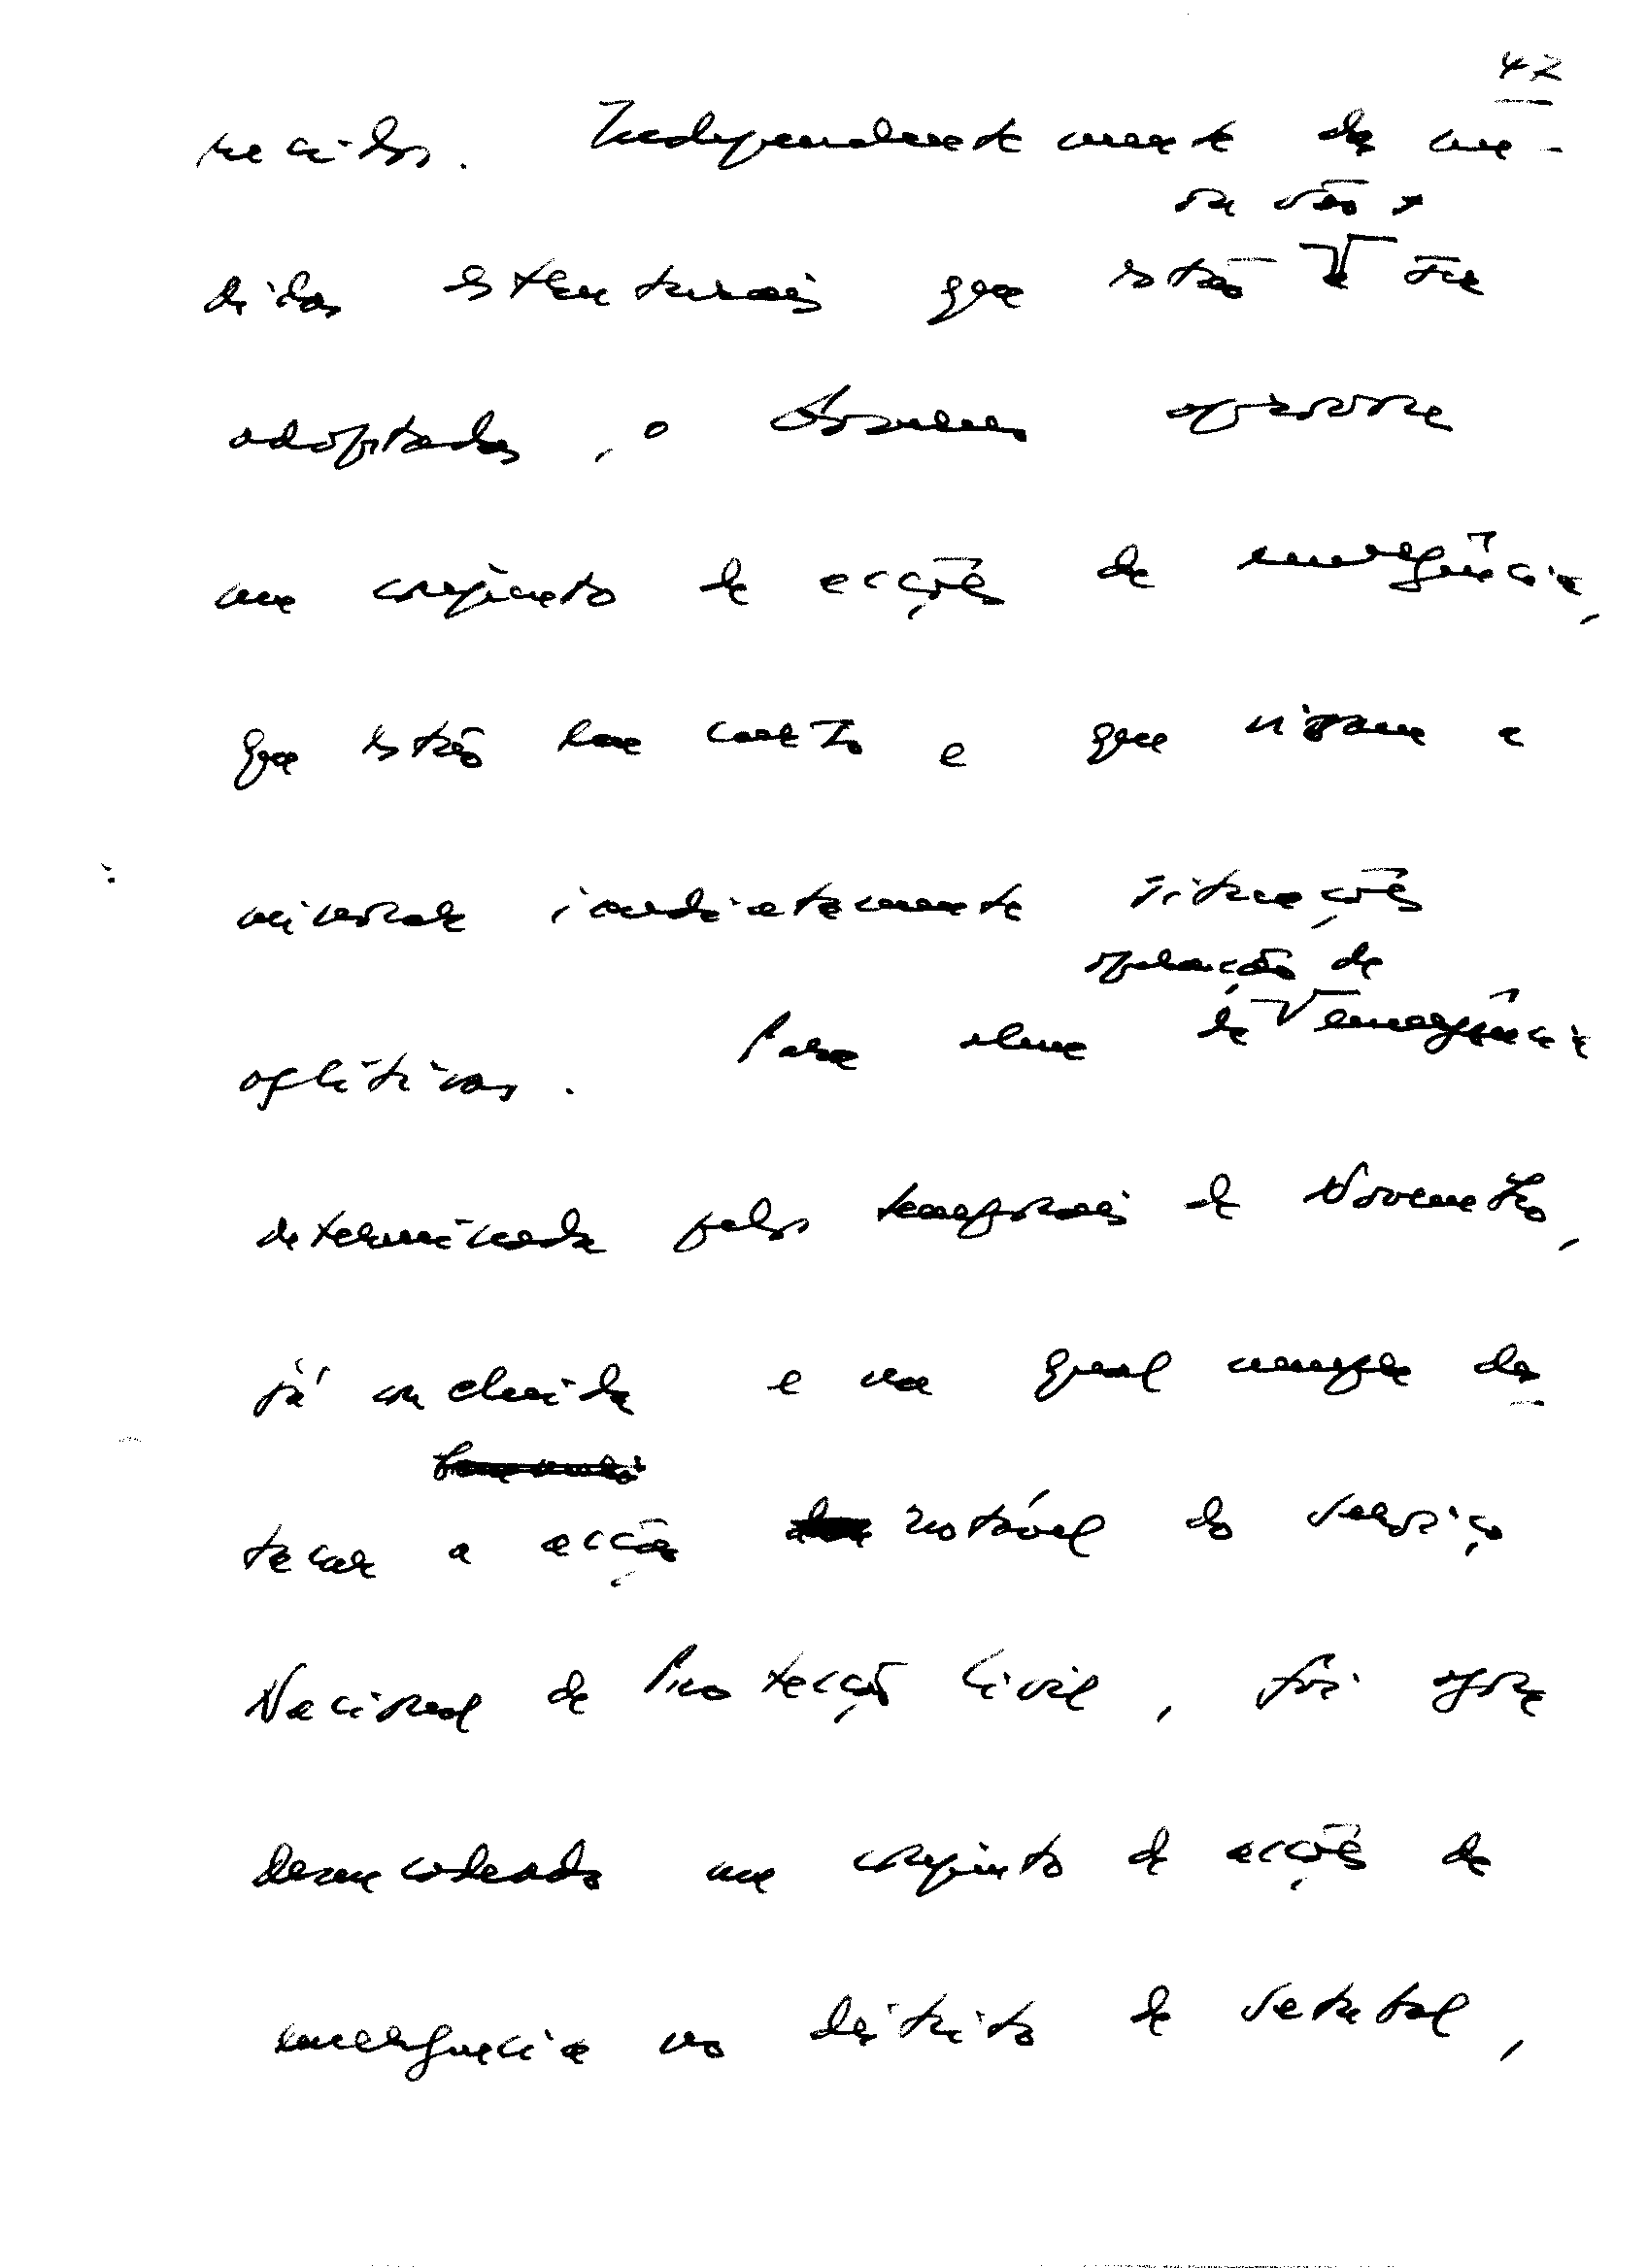 42
recidos. Independentemente das me-
ou vão
didas estruturais que estão a ser
adoptadas, o Governo aprovou
um conjunto de acções de emergência,
que estão em curso e que visam a
minorar imediatamente situações
operação de
aflitivas. Para além da emergência
determinada pelos temporais de Novembro,
já concluída e na qual cumpre des
tacar a acção notável do Serviço
Nacional de Protecção Civil, foi agora
desencadeado um conjunto de acções de
emergência no distrito de Setúbal,